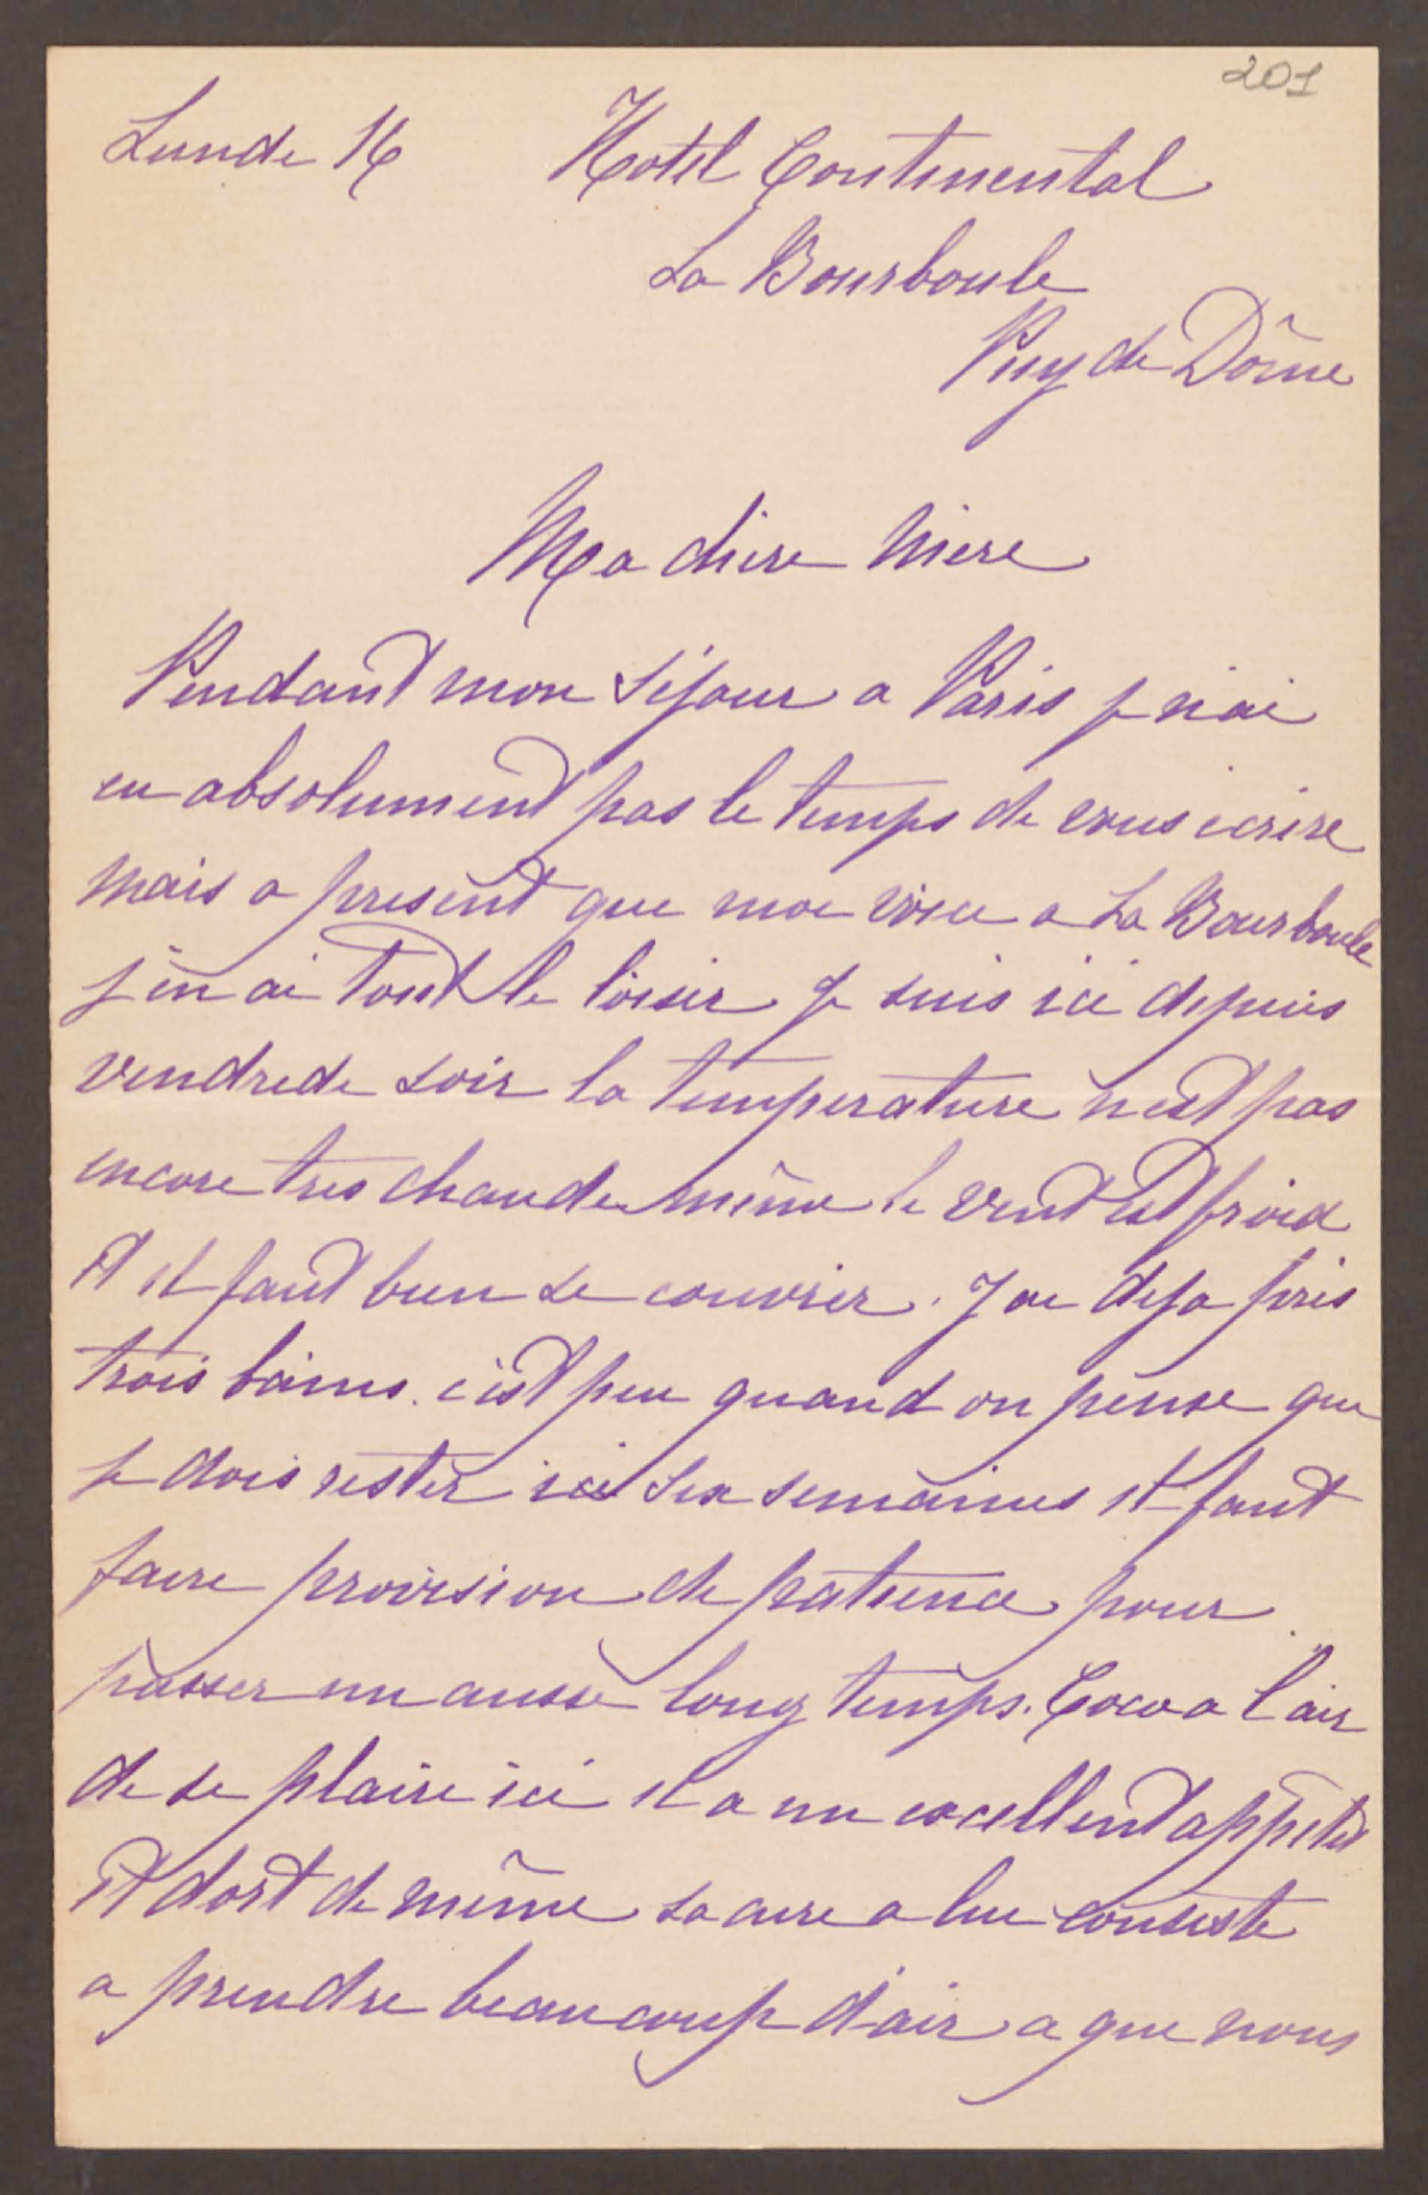 201
Lundi 16 Hotel Continental
La Bourboule
Puy de Dôme
Ma chère Mère
Pendant mon séjour a Paris je n'ai
eu absolument pas le temps de vous écrire
mais a present que me voici a La Bourboule
j'en ai tout le loisir Je suis ici depuis
vendredi soir la temperature n'est pas
encore tres chaude même le vent est froid
et il faut bien se couvrir. J'ai deja pris
trois bains. c'est peu quand on pense que
je dois rester ici six semaines il faut
faire provision de patience pour
passer un aussi long temps. Coco a l'air
de se plaire ici il a un excellent appetit
et dort de même sa cure a lui consiste
a prendre beaucoup d'air a que nous